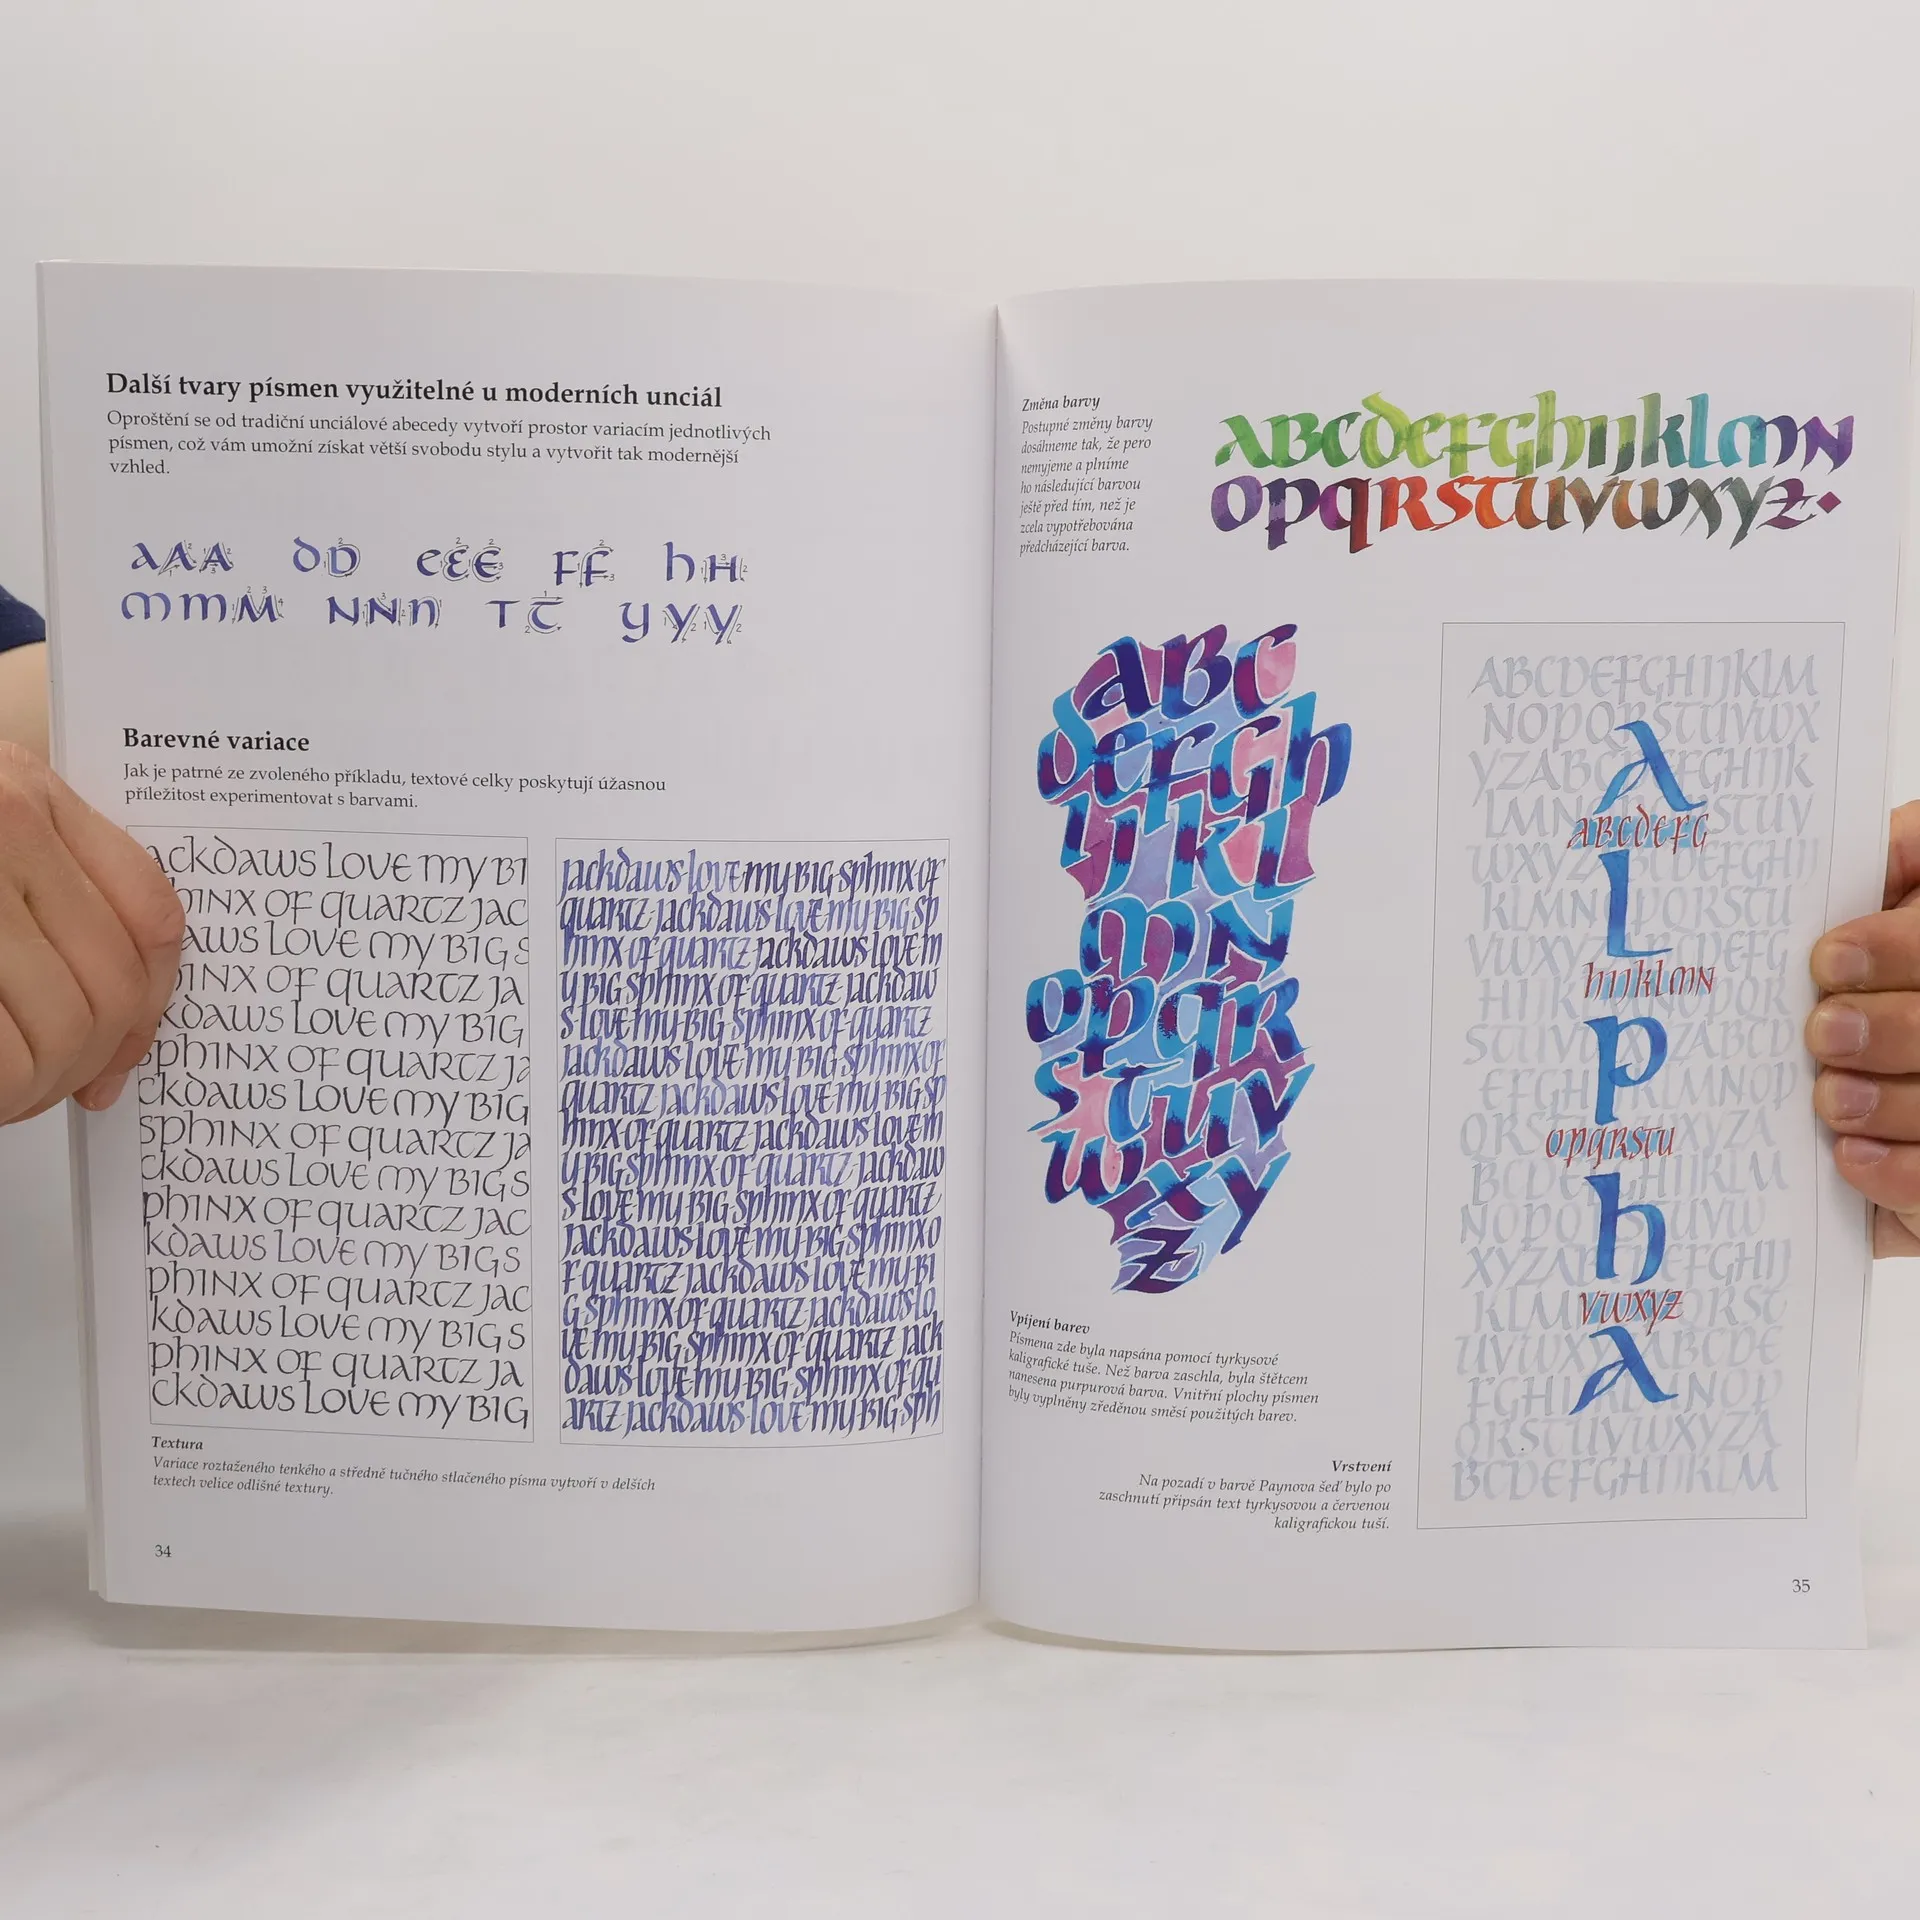 Další tvary písmen využitelné u moderních unciál
Oproštění se od tradiční unciálové abecedy vytvoří prostor variacím jednotlivých
písmen, což vám umožní získat větší svobodu stylu a vytvořit tak modernější
vzhled.
aAA dD eEE FF hH
mmM NNn TT yyy
Barevné variace
Jak je patrné ze zvoleného příkladu, textové celky poskytují úžasnou
příležitost experimentovat s barvami.
ackdaws love my BI
phINX OF quartz jac
aws love my BIG S
hINX OF quartz ja
kdaws love my BIG
sphINX OF quartz ja
ckdaws love my BIG
sphINX OF quartz ja
ckdaws love my BIG S
phINX OF quartz jac
kdaws love my BIG S
phINX OF quartz jac
kdaws love my BIG S
phINX OF quartz ja
ckdaws love my BIG
jackdaws·love my·BIG·sphinx·of
quartz·jackdaws·love·my·BIG·sp
hinx·of·quartz·jackdaws·love·m
y·BIG·sphinx·of·quartz·jackdaw
s·love·my·BIG·sphinx·of·quartz
jackdaws·love·my·BIG·sphinx·of
quartz·jackdaws·love·my·BIG·sp
hinx·of·quartz·jackdaws·love·m
y·BIG·sphinx·of·quartz·jackdaw
s·love·my·BIG·sphinx·of·quartz
jackdaws·love·my·BIG·sphinx·o
f·quartz·jackdaws·love·my·BI
G·sphinx·of·quartz·jackdaws·lo
ve·my·BIG·sphinx·of·quartz·jack
daws·love·my·BIG·sphinx·of·qu
artz·jackdaws·love·my·BIG·sph
Textura
Variace roztaženého tenkého a středně tučného stlačeného písma vytvoří v delších
textech velice odlišné textury.
34
Změna barvy
Postupné změny barvy
dosáhneme tak, že pero
nemyjeme a plníme
ho následující barvou
ještě před tím, než je
zcela vypotřebována
předcházející barva.
aBcdefghijklmn
opqrstuvwxyz
aBc
defgh
ijkl
mn
opqr
stuv
wxy
z
Vpíjení barev
Písmena zde byla napsána pomocí tyrkysové
kaligrafické tuše. Než barva zaschla, byla štětcem
nanesena purpurová barva. Vnitřní plochy písmen
byly vyplněny zředěnou směsí použitých barev.
Vrstvení
Na pozadí v barvě Paynova šeď bylo po
zaschnutí připsán text tyrkysovou a červenou
kaligrafickou tuší.
ABCDEFGHIJKLM
NOPQRSTUVWX
A
aBcdefg
L
hijklmn
p
opqrstu
h
vwxyz
A
35